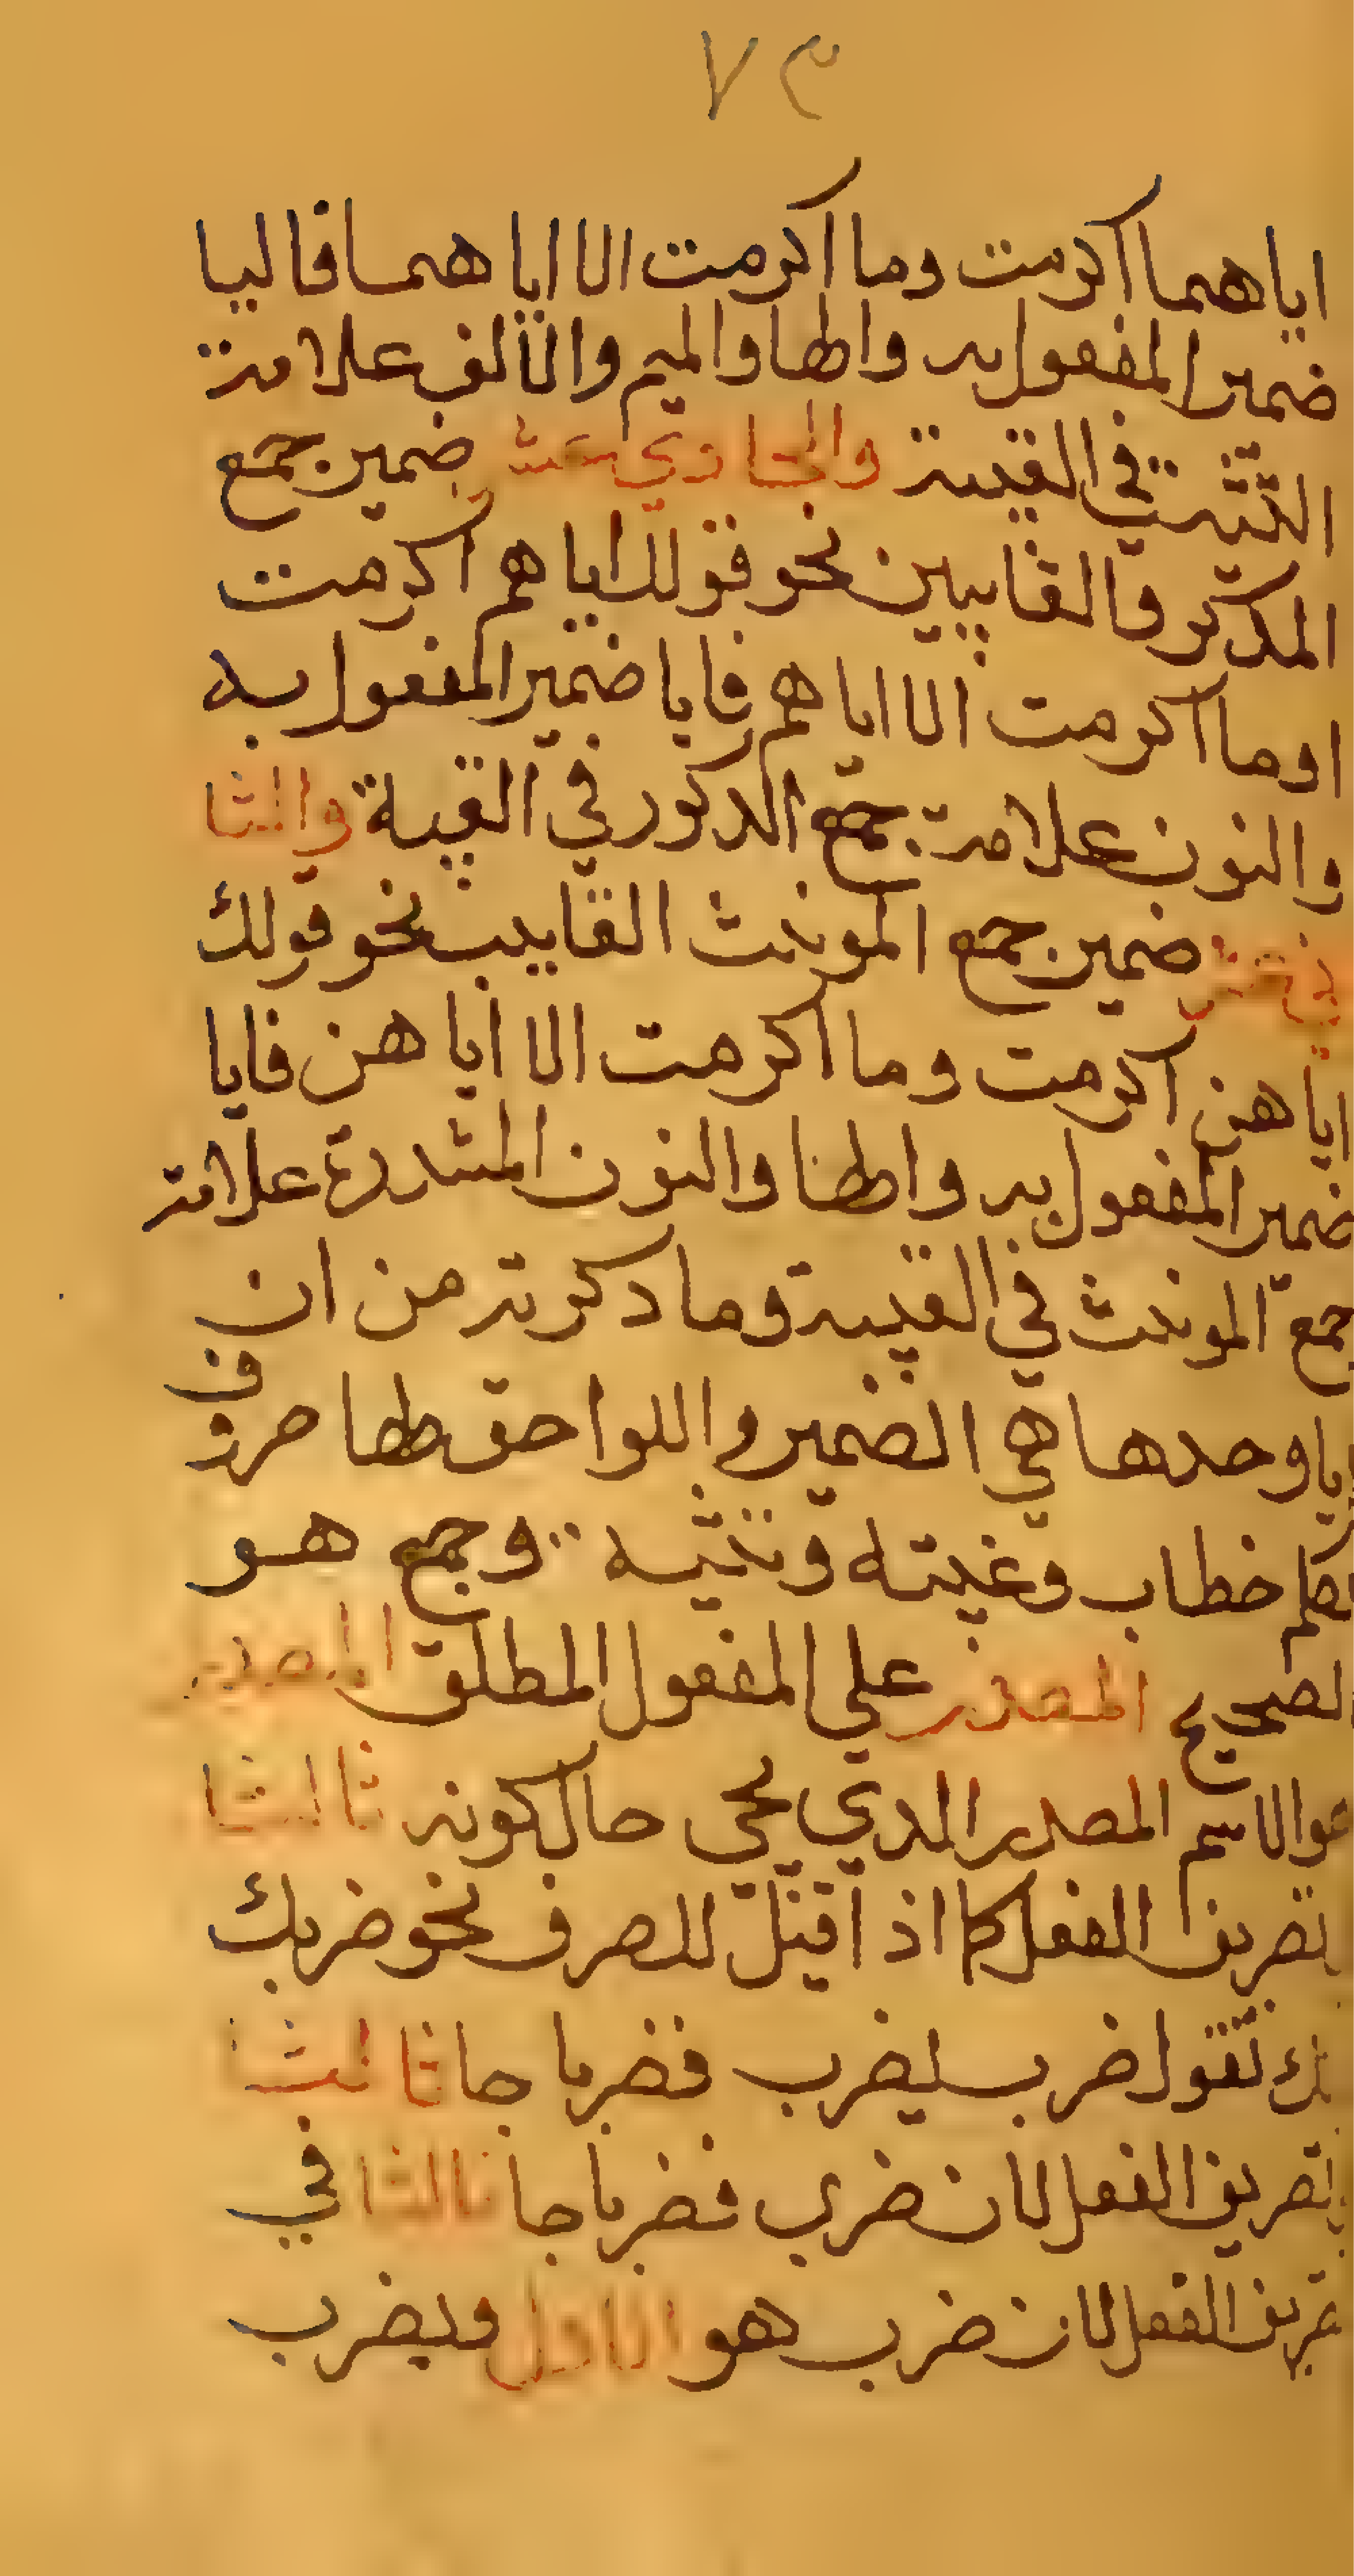 ٧٣
اياهما اكرمت وما اكرمت الا اياهما فاليا
ضمير المفعول به والها والميم والالف علامة
التثنية في الغيبة والحادي عشر ضمير جمع
المدكر فالغايبين نحو قولك اياهم اكرمت
اوما اكرمت الا اياهم فايا ضمير المفعول به
والنون علامة جمع الدكور في الغيبة والثا
ني عشر ضمير جمع المونث الغايب نحو قولك
اياهن اكرمت وما اكرمت الا اياهن فايا
ضمير المفعول به والها والنون المشددة علامة
جمع المونث في الغيبة وما دكرته من ان
ايا وحدها هي الضمير واللواحق لها حروف
تكلم خطاب وغيبته وتثنيه وجمع هو
الصحيح المصدر علي المفعول المطلق المصدر
هو الاسم المصدر الدي يجي حال كونه ثالثا
تصريف الفعل كما اذ اقيل للصرف نحو ضربك
نك تقول ضرب يضرب فضربا جا ثالثا
تصريف الفعل لان ضرب فضربا جا ثالثا في
تصريف الفعل لان ضرب هو الاول ويضرب